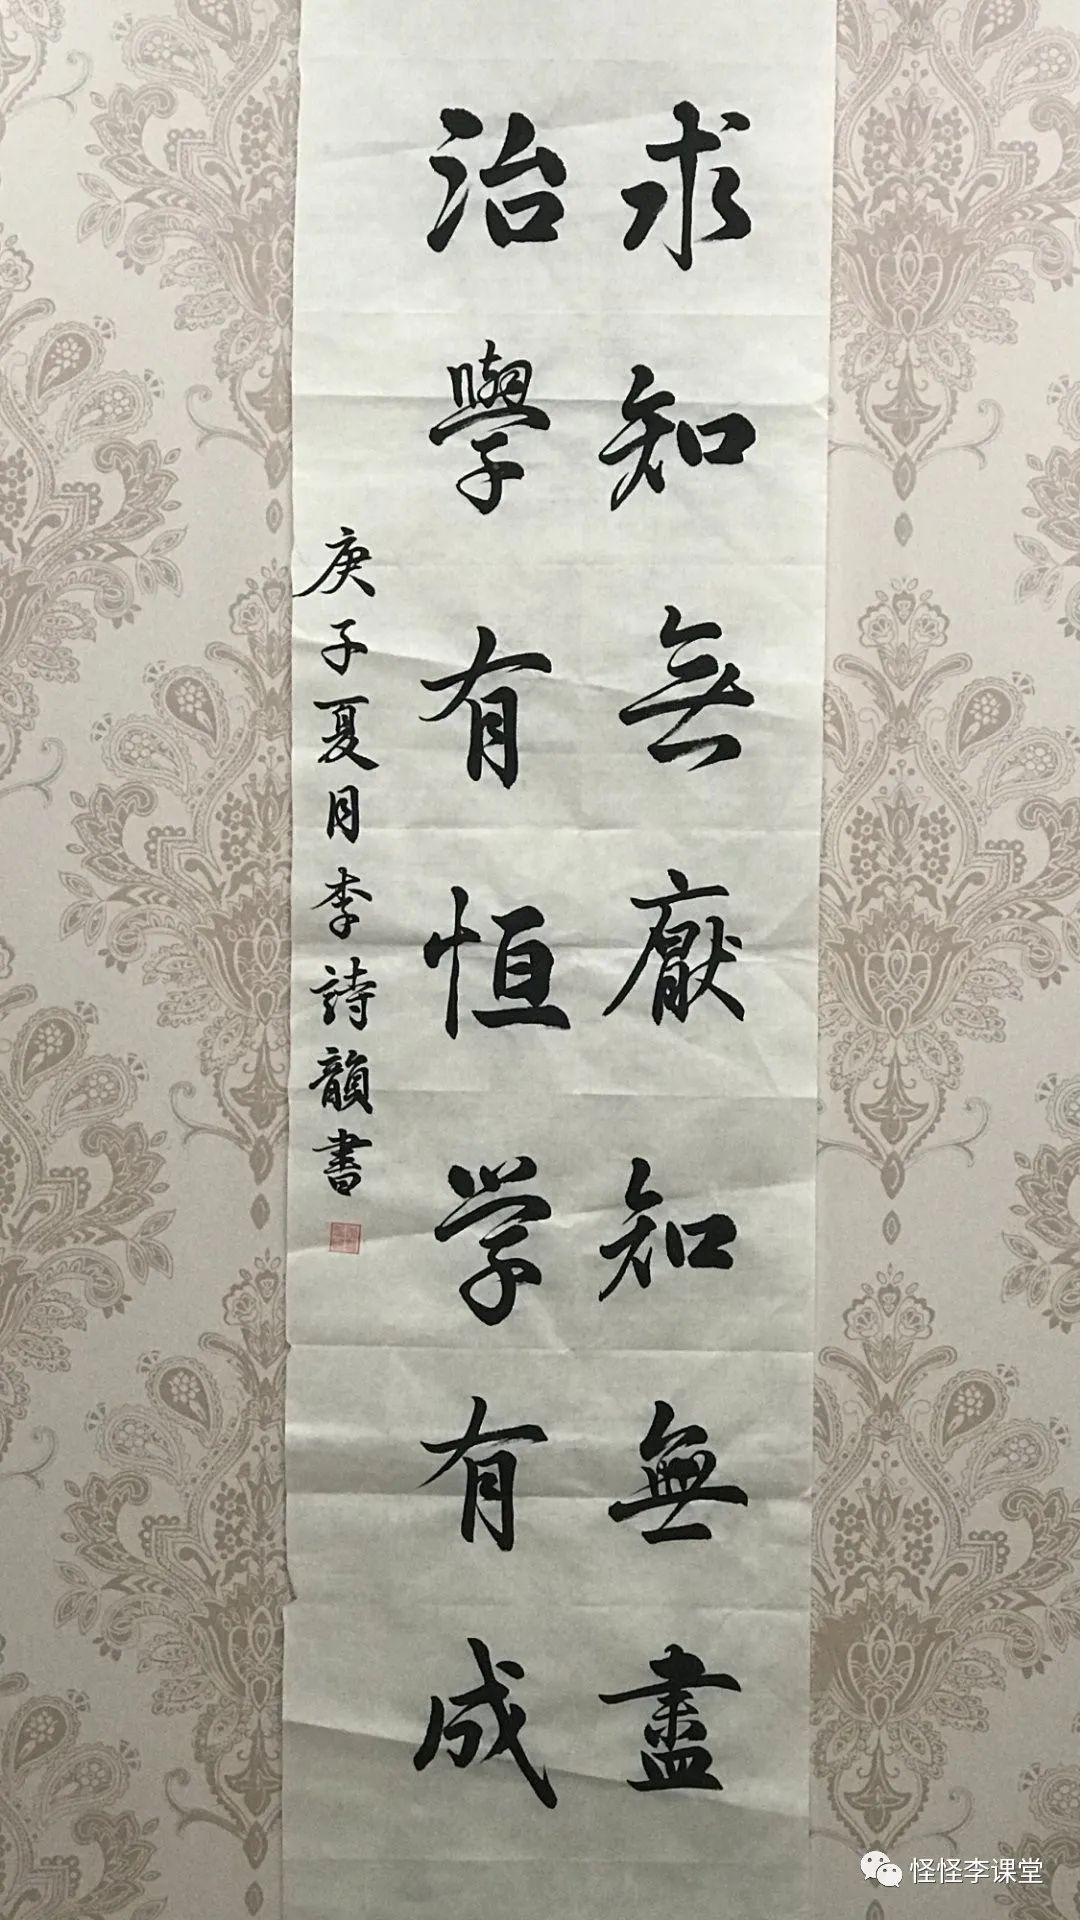 求知無厭知無盡
治學有恒学有成
庚子夏月李詩韻書
怪怪李课堂